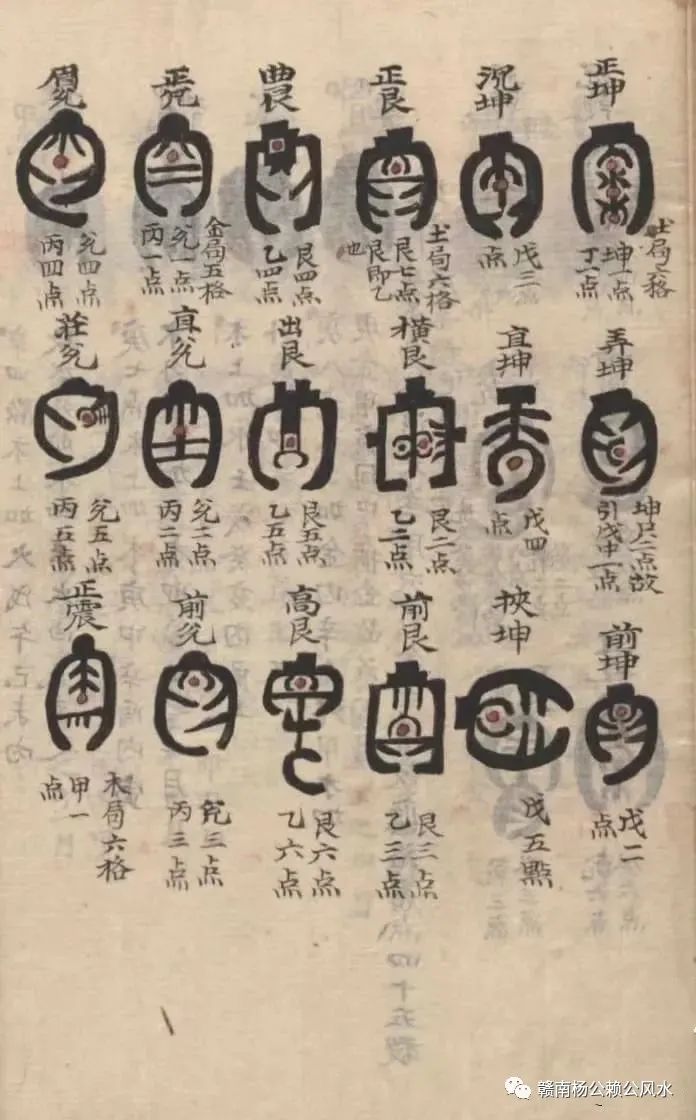 正坤
土局格
坤一点
丁一点
弄坤
坤二点故
引戊申一点
前坤
戊二
点
坤
戊三
点
直坤
戊四
点
挾坤
戊五點
正艮
土局六格
艮七点
艮即乙
也
橫艮
艮二点
乙二点
前艮
艮三点
乙三点
曲艮
艮四点
乙四点
出艮
艮五点
乙五点
高艮
艮六点
乙六点
正兑
金局五格
兑一点
丙一点
直兑
兑二点
丙二点
前兑
兑三点
丙三点
眉兑
兑四点
丙四点
莊兑
兑五点
丙五点
正震
木局六格
甲一
点
赣南杨公赖公风水